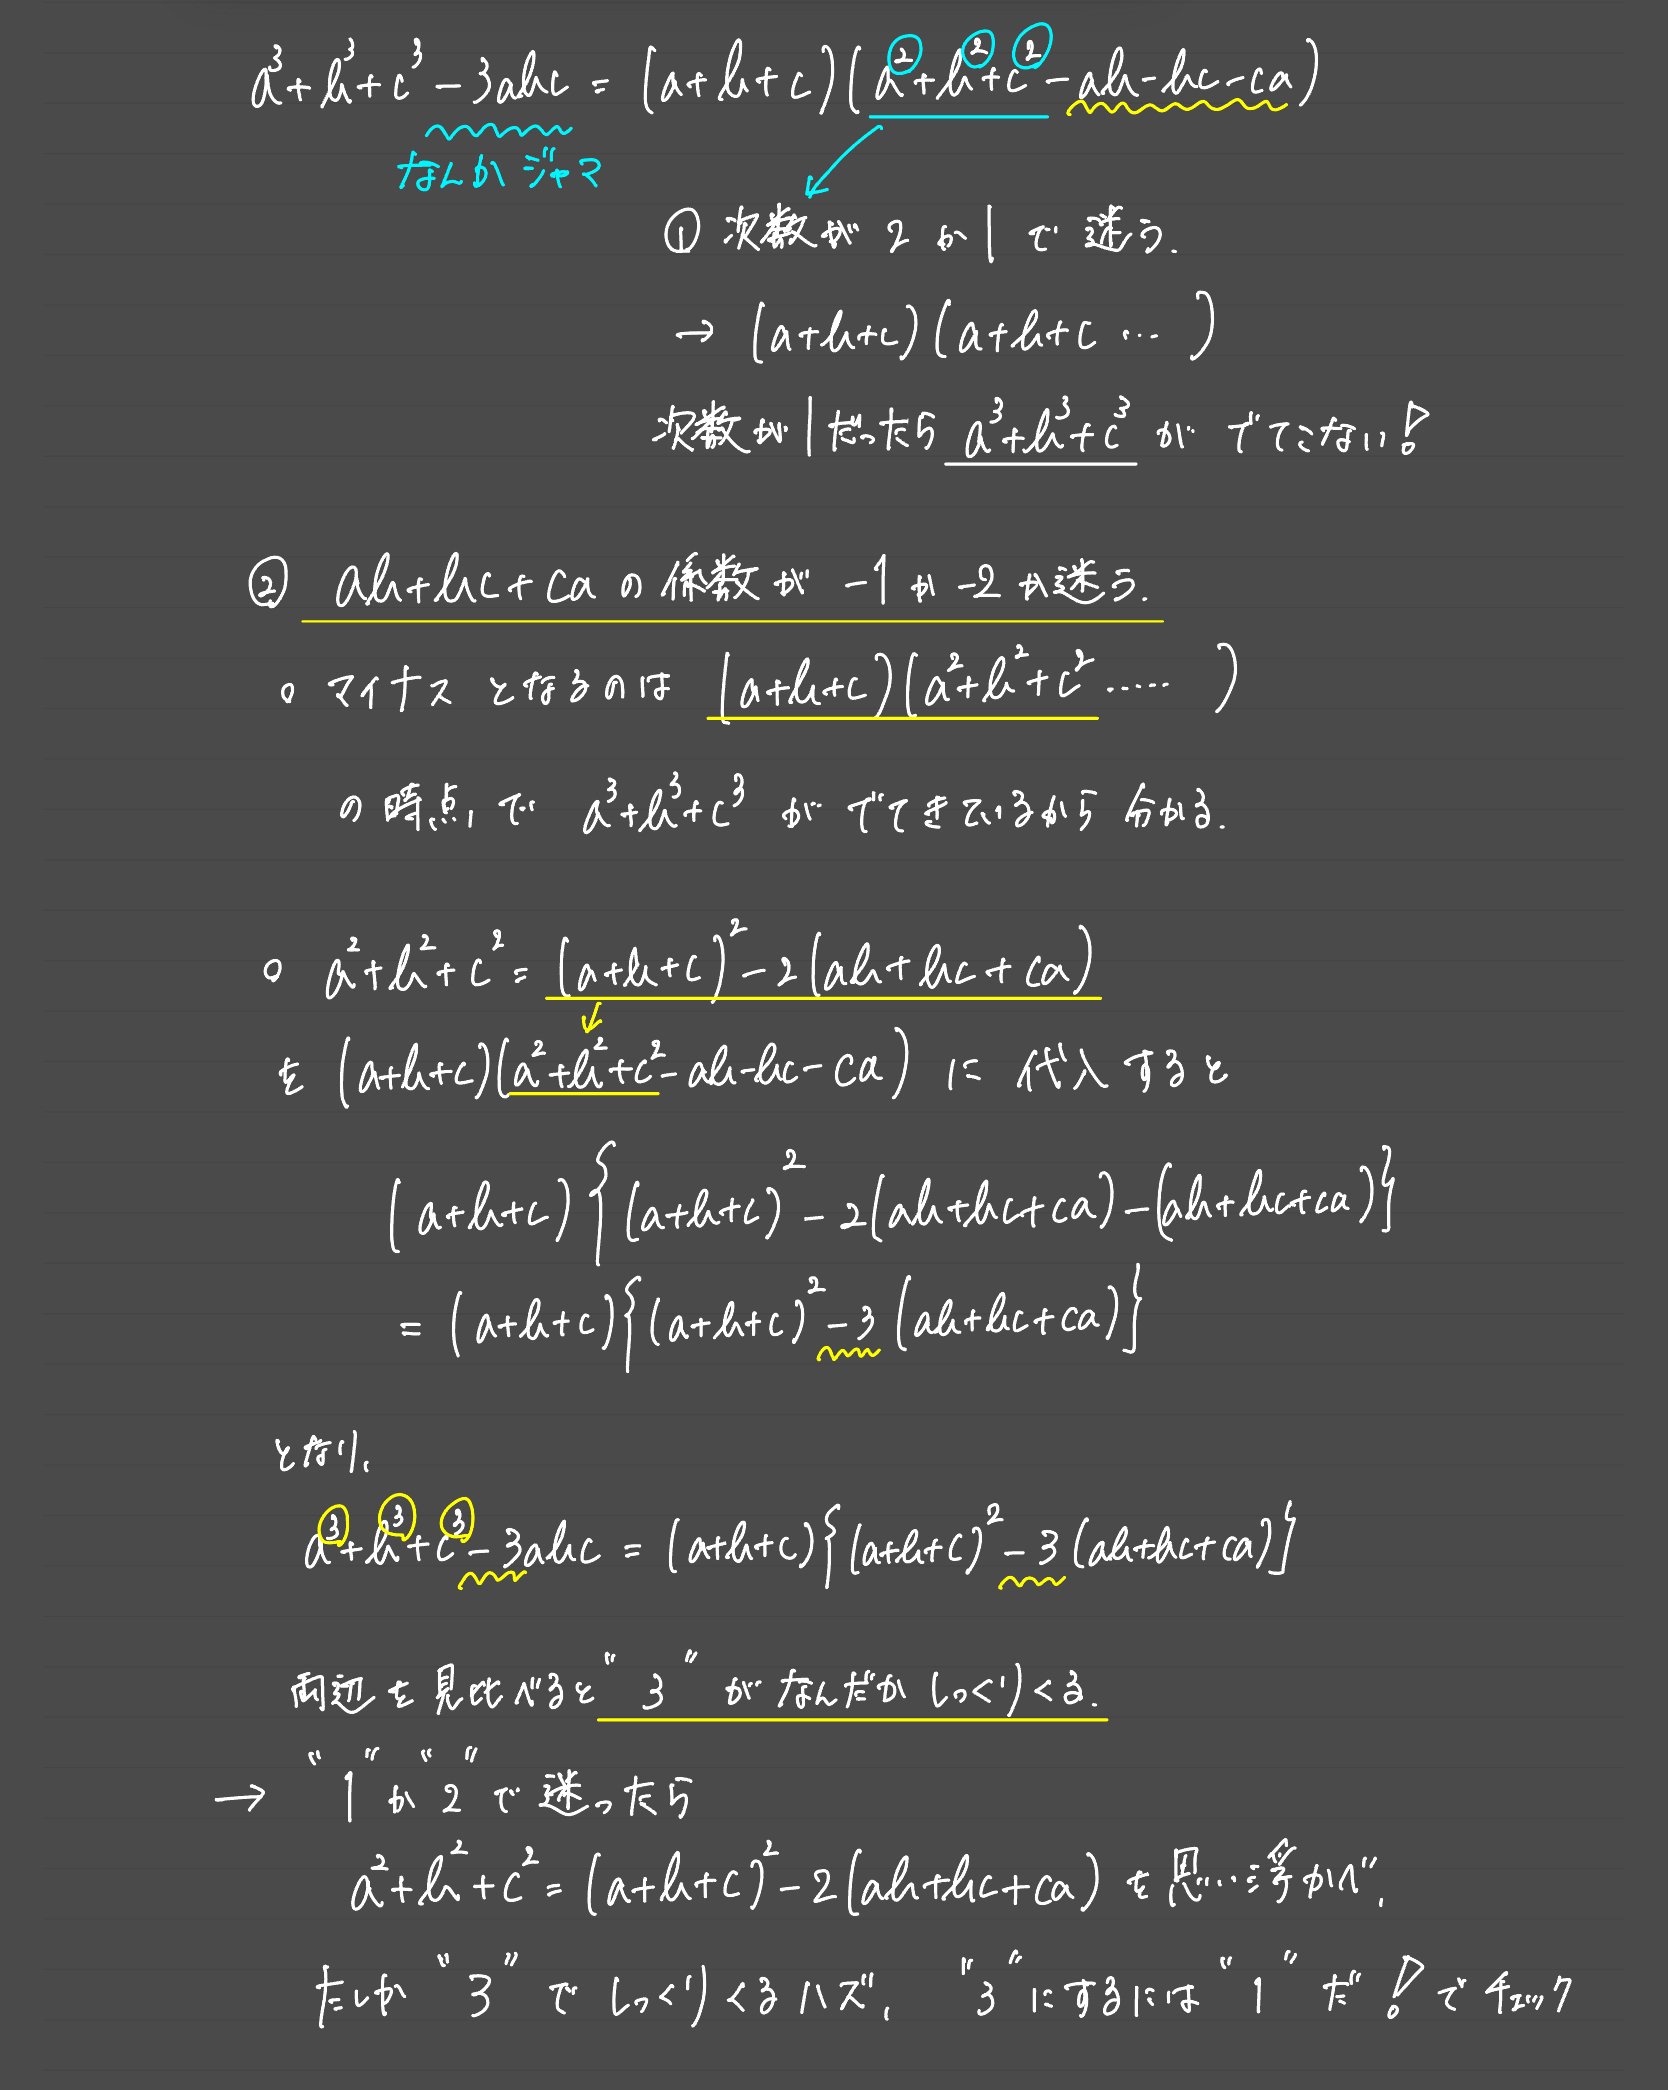 a³+b³+c³-3abc = (a+b+c)(a²+b²+c²-ab-bc-ca)
なんかジャマ
① 次数が2か1で迷う.
→ (a+b+c)(a+b+c … )
次数が1だったら a³+b³+c³ が でてこない!
② ab+bc+ca の係数が -1か-2か迷う.
○ マイナス となるのは (a+b+c)(a²+b²+c² …… )
の時点で a³+b³+c³ が でてきているから 分かる.
○ a²+b²+c² = (a+b+c)²-2(ab+bc+ca)
を (a+b+c)(a²+b²+c²-ab-bc-ca) に 代入すると
(a+b+c){(a+b+c)²-2(ab+bc+ca)-(ab+bc+ca)}
= (a+b+c){(a+b+c)²-3(ab+bc+ca)}
となり、
a³+b³+c³-3abc = (a+b+c){(a+b+c)²-3(ab+bc+ca)}
両辺を見比べると "3" がなんだかしっくりくる.
→ "1"か"2"で迷ったら
a²+b²+c² = (a+b+c)²-2(ab+bc+ca) を思い浮かべ、
たしか "3" でしっくりくるハズ、 "3"にするには "1" だ!でチェック